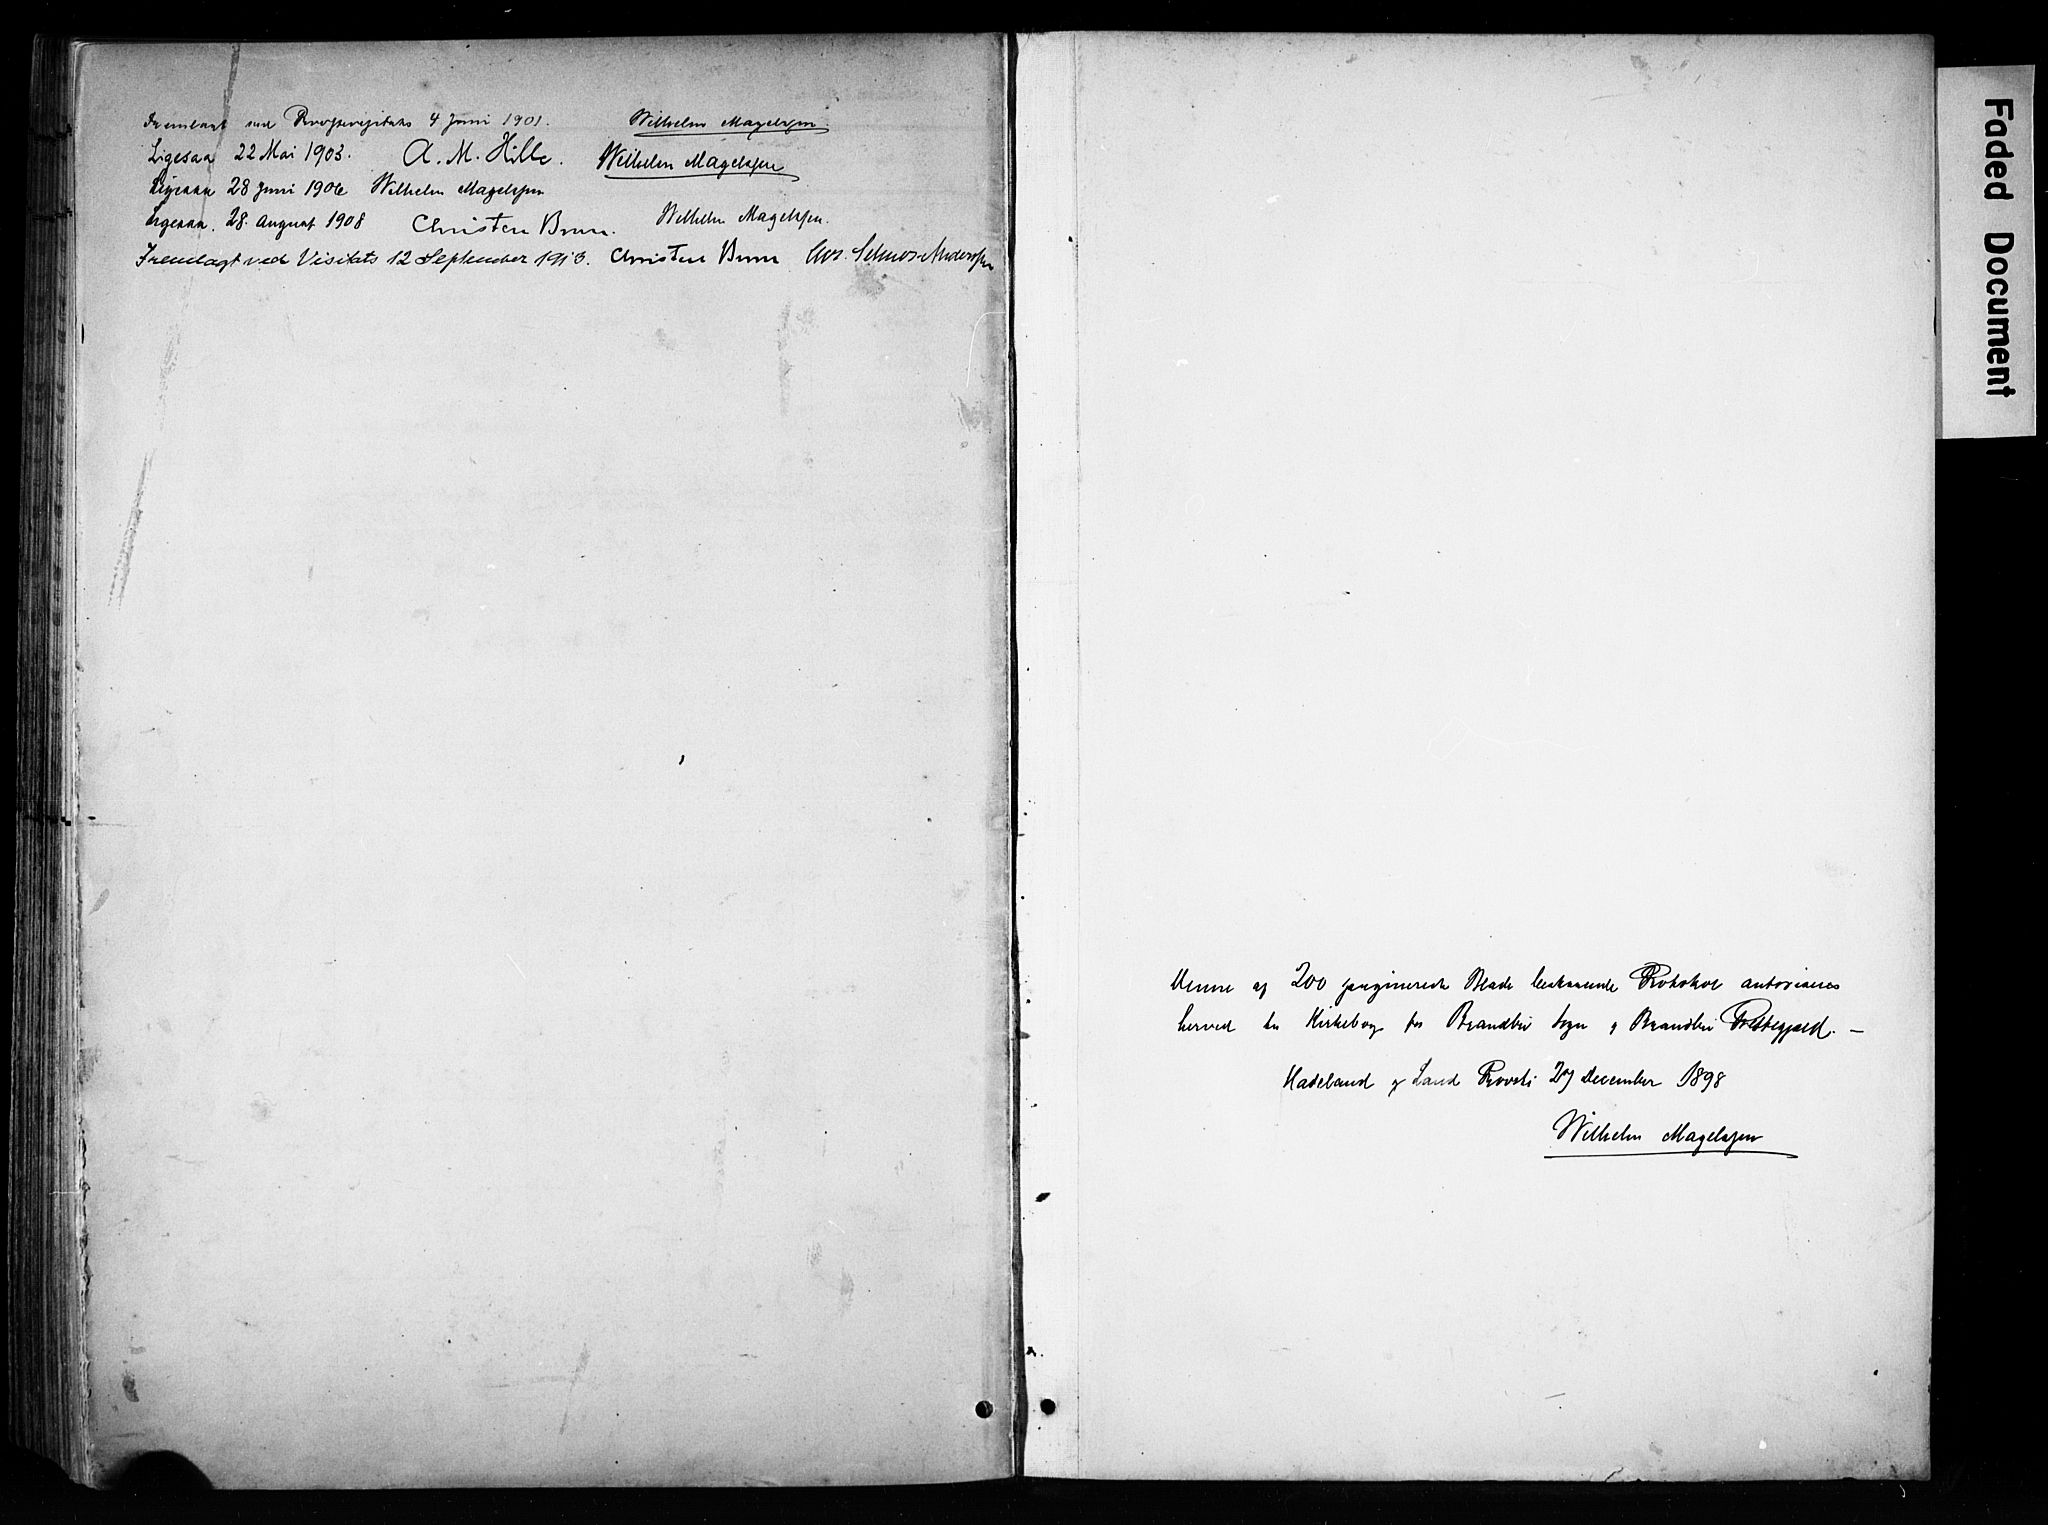 Fremlagt ved Provstevisitats 4 Juni 1901. Wilhelm Magelssen
Ligesaa 22 Mai 1903. A. M. Hille. Wilhelm Magelssen
Ligesaa 28 Juni 1906 Wilhelm Magelssen
Ligesaa. 28. August 1908 Christen Brun. Wilhelm Magelssen.
Fremlagt ved Visitats 12 September 1913. Christen Brun
Denne af 200 paginerede Blade bestaaende Protokol autoriseres
herved til Kirkebog for Brandbu Sogn og Brandbu Præstegjæld. —
Hadeland og Land Provsti 27 December 1898
Wilhelm Magelssen
Faded Document